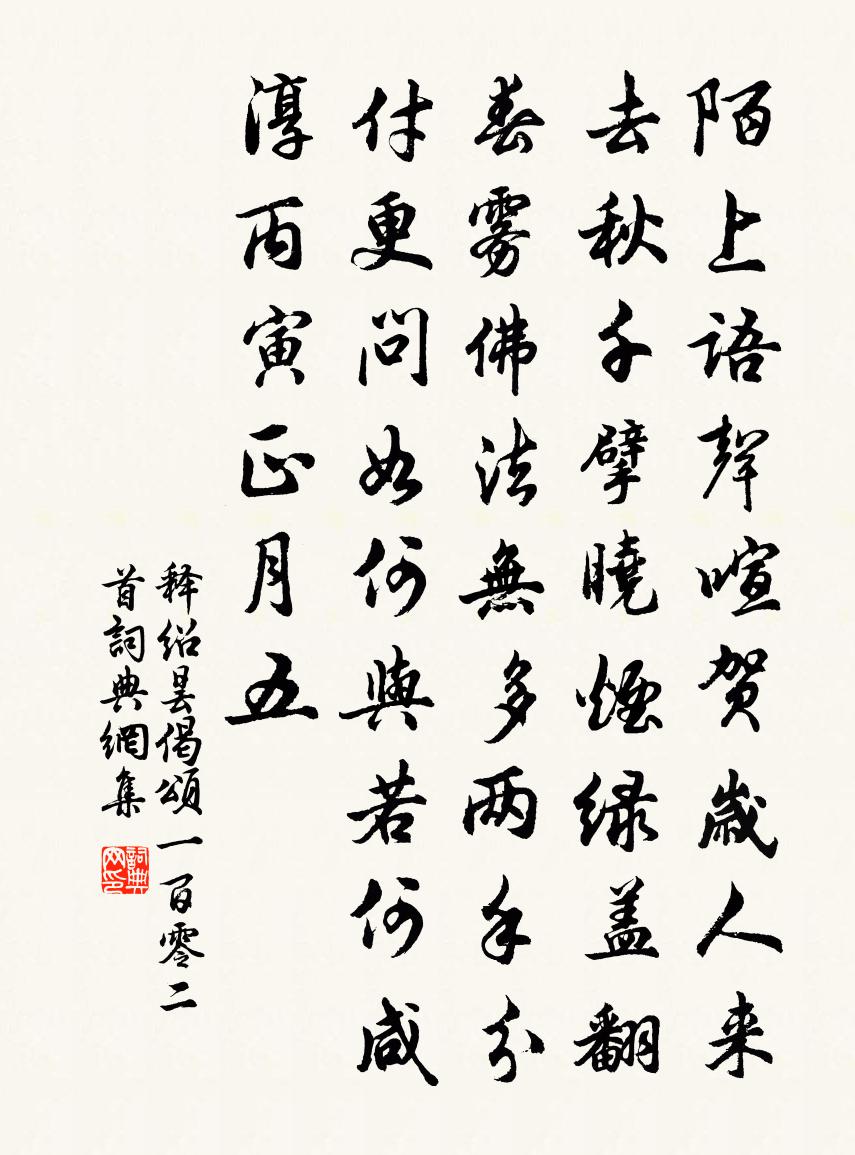 陌上语声喧贺歲人来
去秋千擘曉煙绿盖翻
春雾佛法無多两手分
付更问如何與若何咸
淳丙寅正月五
释绍昙偈颂一百零二
首詞典網集
詞典网印